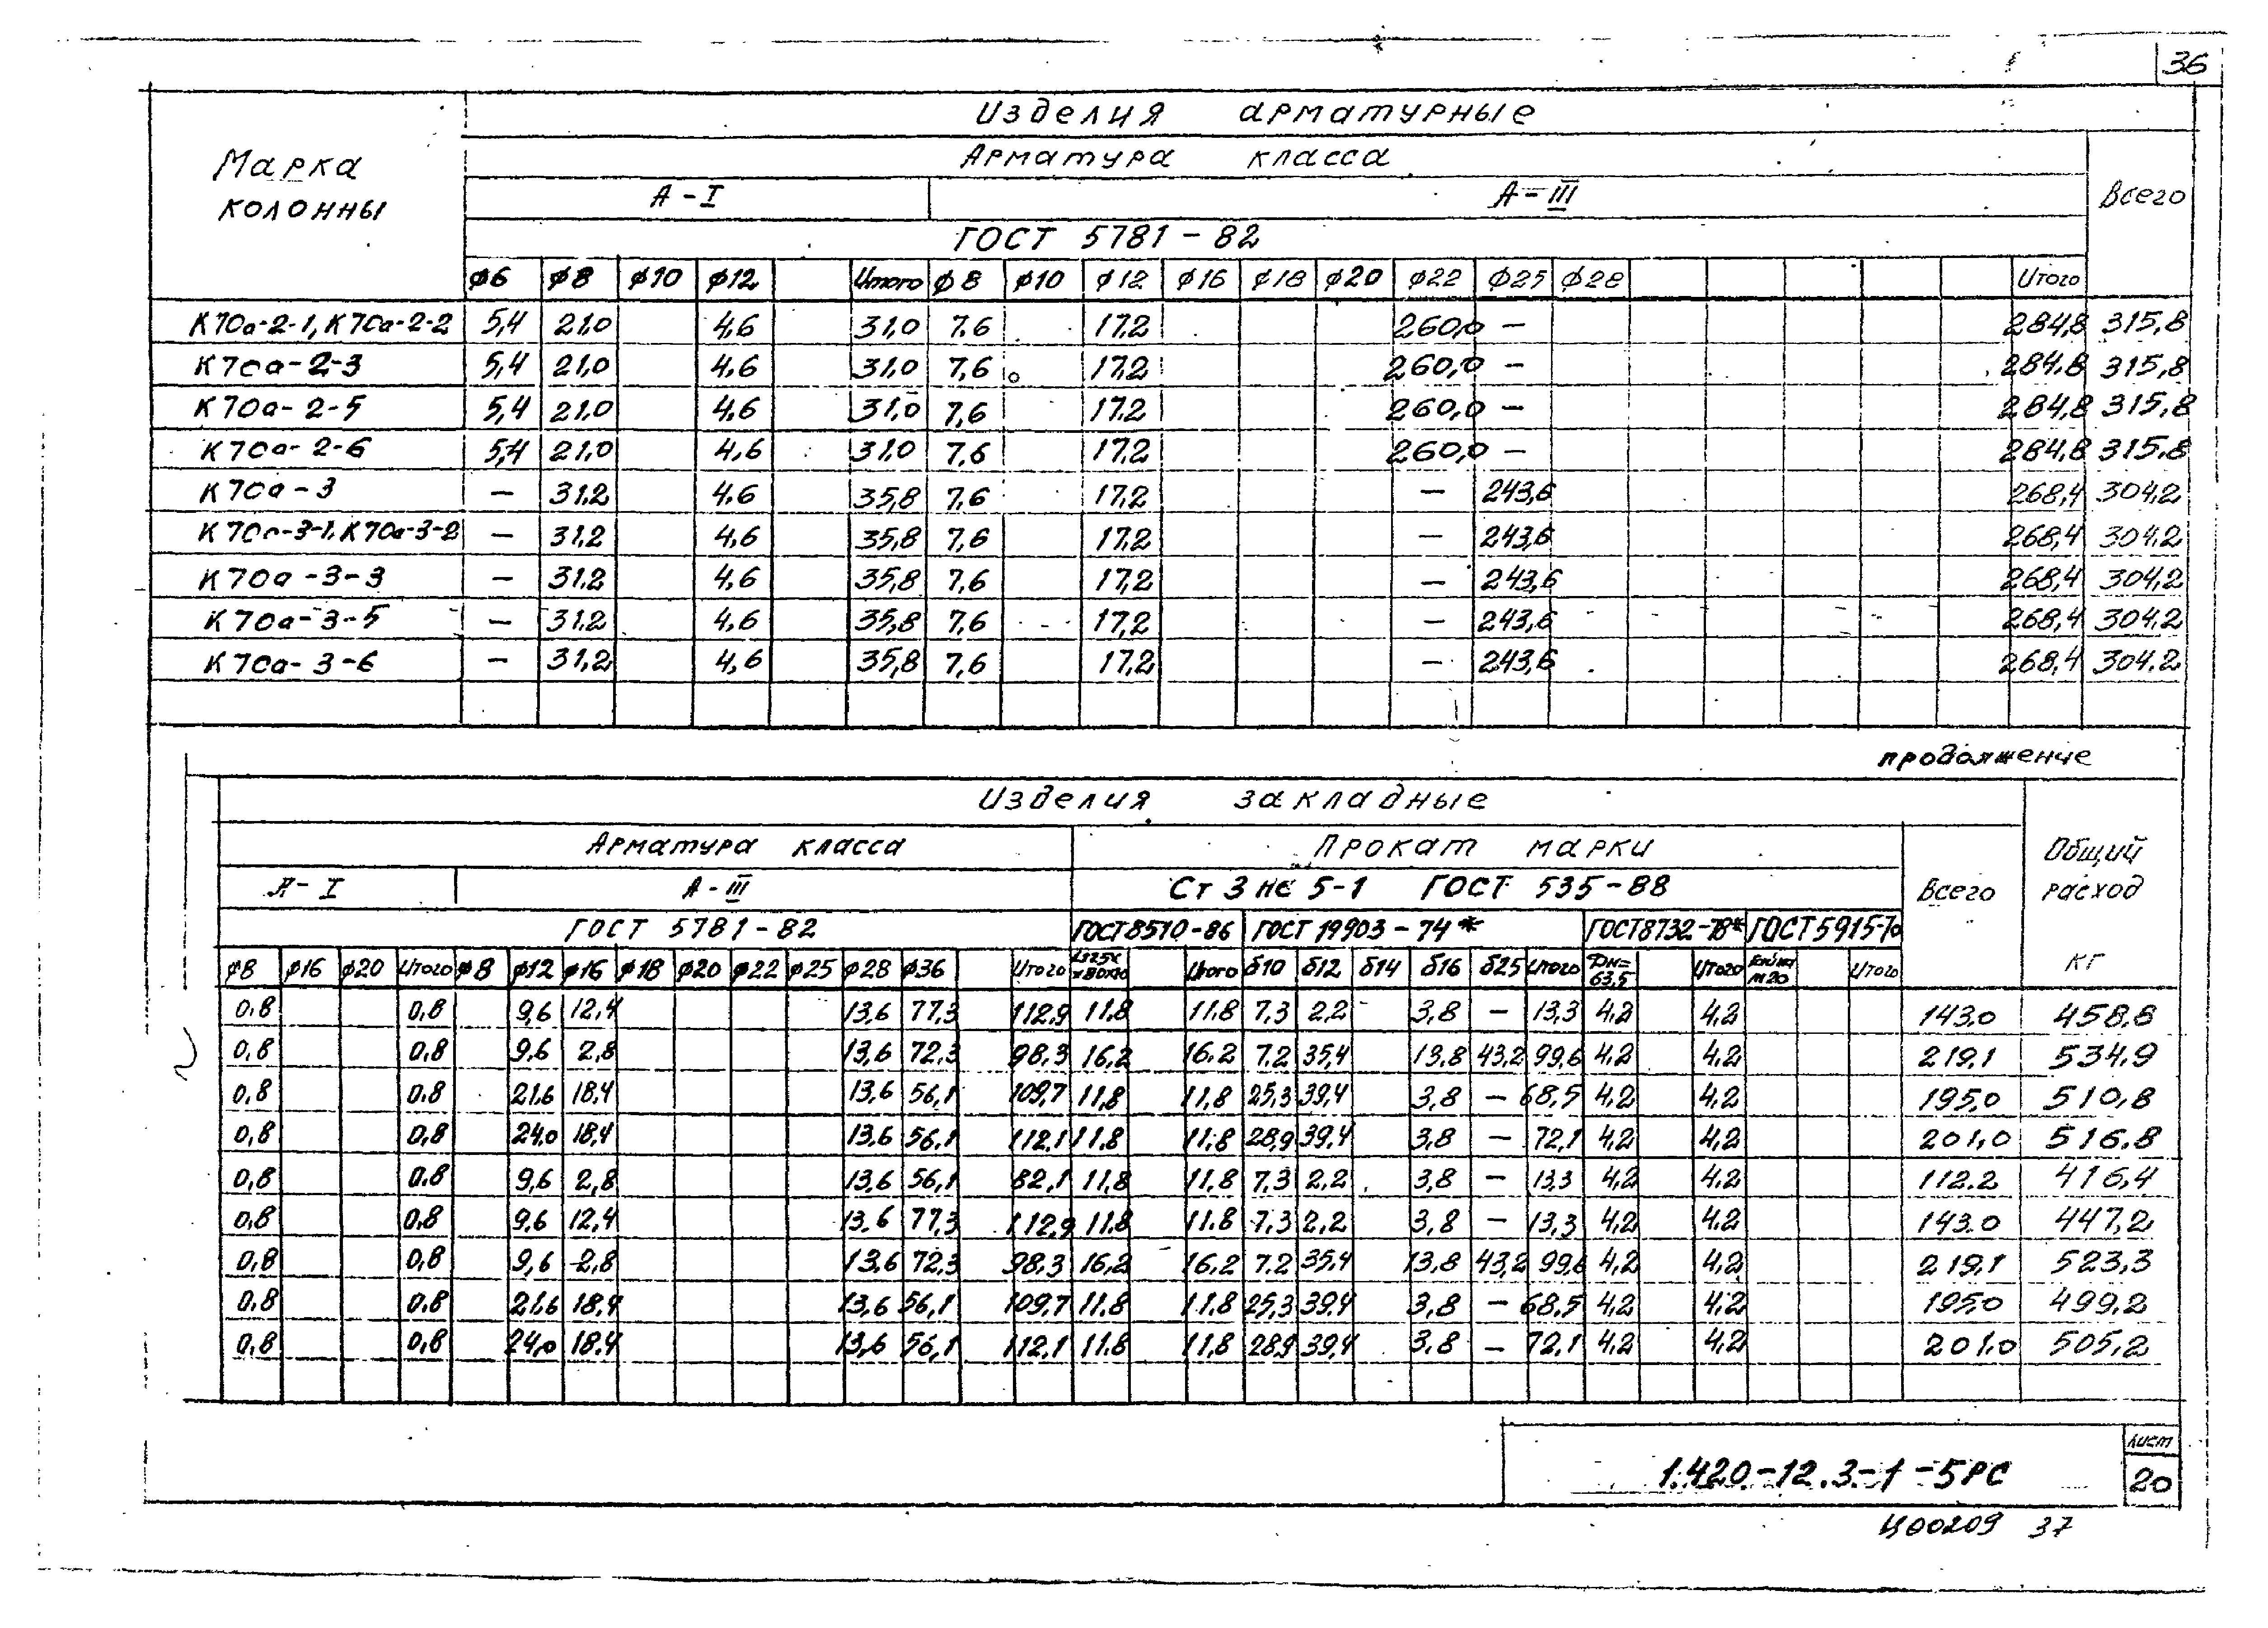 36
Изделия арматурные
Марка колонны
Арматура класса
Всего
А-I А-III
ГОСТ 5781-82
ф6 ф8 ф10 ф12 Итого ф8 ф10 ф12 ф16 ф18 ф20 ф22 ф25 ф28 Итого
К70а-2-1, К70а-2-2 5,4 21,0 4,6 31,0 7,6 17,2 260,0 — 284,8 315,8
К70а-2-3 5,4 21,0 4,6 31,0 7,6 17,2 260,0 — 284,8 315,8
К70а-2-5 5,4 21,0 4,6 31,0 7,6 17,2 260,0 — 284,8 315,8
К70а-2-6 5,4 21,0 4,6 31,0 7,6 17,2 260,0 — 284,8 315,8
К70а-3 — 31,2 4,6 35,8 7,6 17,2 — 243,6 268,4 304,2
К70а-3-1, К70а-3-2 — 31,2 4,6 35,8 7,6 17,2 — 243,6 268,4 304,2
К70а-3-3 — 31,2 4,6 35,8 7,6 17,2 — 243,6 268,4 304,2
К70а-3-5 — 31,2 4,6 35,8 7,6 17,2 — 243,6 268,4 304,2
К70а-3-6 — 31,2 4,6 35,8 7,6 17,2 — 243,6 268,4 304,2
продолжение
Изделия закладные
Арматура класса Прокат марки
Общий расход
А-I А-III Ст 3 пс 5-1 ГОСТ 535-88 Всего
ГОСТ 5781-82 ГОСТ 8510-86 ГОСТ 19903-74* ГОСТ 8732-78* ГОСТ 5915-70
ф8 ф16 ф20 Итого ф8 ф12 ф16 ф18 ф20 ф22 ф25 ф28 ф36 Итого Итого δ10 δ12 δ14 δ16 δ25 Итого Дн=63,5 Итого Гайка М20 Итого кг
0,8 0,8 9,6 12,4 13,6 77,3 112,9 11,8 11,8 7,3 2,2 3,8 — 13,3 4,2 4,2 143,0 458,8
0,8 0,8 9,6 2,8 13,6 72,3 98,3 16,2 16,2 7,2 35,4 13,8 43,2 99,6 4,2 4,2 219,1 534,9
0,8 0,8 21,6 18,4 13,6 56,1 109,7 11,8 11,8 25,3 39,4 3,8 — 68,5 4,2 4,2 195,0 510,8
0,8 0,8 24,0 18,4 13,6 56,1 112,1 11,8 11,8 28,9 39,4 3,8 — 72,1 4,2 4,2 201,0 516,8
0,8 0,8 9,6 2,8 13,6 56,1 82,1 11,8 11,8 7,3 2,2 3,8 — 13,3 4,2 4,2 112,2 416,4
0,8 0,8 9,6 12,4 13,6 77,3 112,9 11,8 11,8 7,3 2,2 3,8 — 13,3 4,2 4,2 143,0 447,2
0,8 0,8 9,6 2,8 13,6 72,3 98,3 16,2 16,2 7,2 35,4 13,8 43,2 99,6 4,2 4,2 219,1 523,3
0,8 0,8 21,6 18,4 13,6 56,1 109,7 11,8 11,8 25,3 39,4 3,8 — 68,5 4,2 4,2 195,0 499,2
0,8 0,8 24,0 18,4 13,6 56,1 112,1 11,8 11,8 28,9 39,4 3,8 — 72,1 4,2 4,2 201,0 505,2
Лист
1.420-12.3-1-5РС 20
Ц00209 37